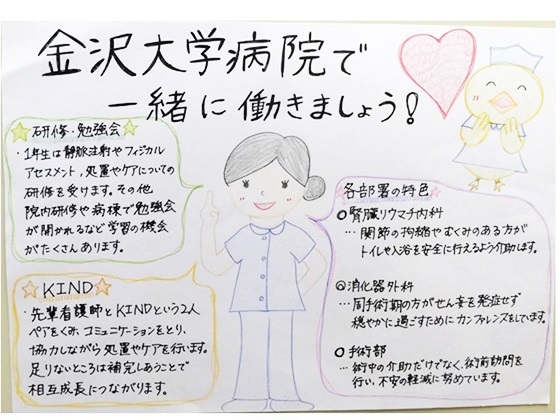 金沢大学病院で
一緒に働きましょう!
研修・勉強会
・1年生は静脈注射やフィジカル
アセスメント,処置やケアについての
研修を受けます。その他
院内研修や病棟で勉強会
が開かれるなど学習の機会
がたくさんあります。
KIND
・先輩看護師とKINDという2人
ペアをくみ、コミュニケーションをとり、
協力しながら処置やケアを行います。
足りないところは補完しあうことで
相互成長につながります。
各部署の特色
腎臓リウマチ内科
… 関節の拘縮やむくみのある方が
トイレや入浴を安全に行えるよう介助します。
消化器外科
… 周手術期の方がせん妄を発症せず
穏やかに過ごすためにカンファレンスをしています。
手術部
… 術中の介助だけでなく、術前訪問を
行い、不安の軽減に努めています。